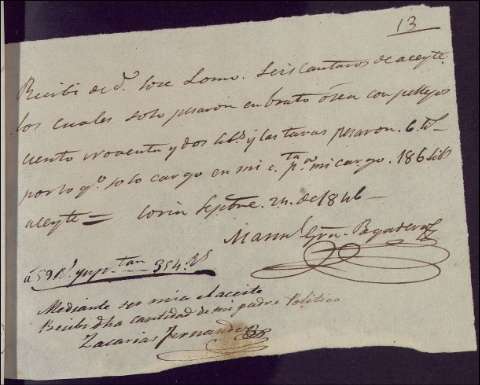 13
Recibi de Dn. Jose Lomo. Seis Cantaros de aceyte
los cuales solo pesaron en bruto ósea con pellejos
ciento noventa y dos lib.s y las taras pesaron. 6. lb.
por lo q.e solo cargo en mi c.ta p.r mi cargo. 186 lib
aceyte = Coria Septbre. 24. de 1846
Man.l Gra.
á 59 R.s 354. R.s
Mediante ser mio el aceite
Recibi dha cantidad de mi padre Politico
Zacarias Fernandez